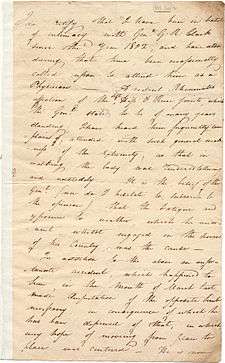 This certify that I have been in habits
of intimacy with Genl. G. R. Clark
since the Year 1802 and have also
during that time been occasionally
called upon to attend him as a
Physician — A violent Rheumatic
affection of the Hip & Knee joints which
the Genl. stated to be of many years
standing I have heard him frequently complain
of attended with such general weak
ness of the extremity, so that in
walking the body was
and unsteady. It is the belief of the
Genl. nor do I hesitate to subscribe to
the opinion that the fatigue and
exposure to weather which he under
went whilst engaged in the service
of his Country was the cause —
In addition to the above an unfor
tunate accident which happened to
him in the Month of March last
made Amputation of the opposite limb
necessary in consequence of which he
has been deprived of that, in which
any hope of moving from place to
place was centered. He is now